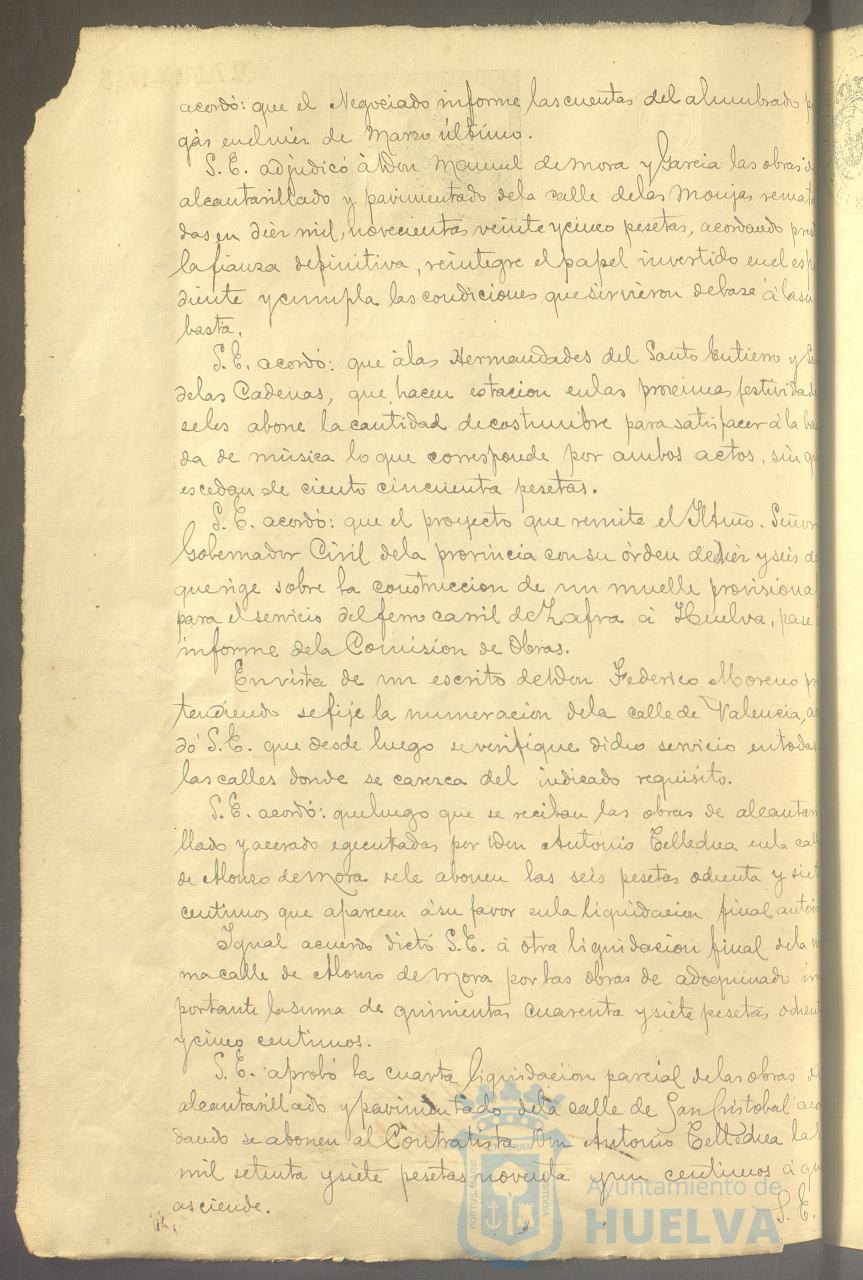 acordó: que el Negociado informe las cuentas del alumbrado p
gas en el mes de Marzo último.
S. E. adjudicó à Don Manuel de Mora y Garcia las obras d
alcantarillado y pavimentado de la calle de las Monjas remat
das en diez mil, novecientas veinte y cinco pesetas, acordando pre
la fianza definitiva, reintegre el papel invertido en el esp
diente y cumpla las condiciones que sirvieron de base á la su
basta.
S. E. acordó: que à las Hermandades del Santo Entierro y
de las Cadenas, que hacen estacion en las proximas festividad
se les abone la cantidad de costumbre para satisfacer á la ba
da de música lo que corresponde por ambos actos, sin q
escedan de ciento cincuenta pesetas.
S. E. acordó: que el proyecto que remite el Iltmo. Señor
Gobernador Civil de la provincia con su órden de diez y seis de
que rige sobre la construccion de un muelle provisional
para el servicio del ferro carril de Zafra á Huelva, pase á
informe de la Comision de Obras.
En vista de un escrito de Don Federico Moreno pr
tendiendo se fije la numeracion de la calle de Valencia, a
dó S. E. que desde luego se verifique dicho servicio en todas
las calles donde se carezca del indicado requisito.
S. E. acordó: que luego que se reciban las obras de alcantari
llado y acerado egecutadas por Don Antonio Tellechea en la call
de Alonzo de Mora se le abonen las seis pesetas ochenta y siete
centimos que aparecen á su favor en la liquidacion final
Igual acuerdo dictó S. E. á otra liquidacion final de la m
ma calle de Alonzo de Mora por las obras de adoquinado im
portante la suma de quinientas cuarenta y siete pesetas ochent
y cinco centimos.
S. E. aprobó la cuarta liquidacion parcial de las obras d
alcantarillado y pavimentado de la calle de San Cristobal aco
dando se abonen al Contratista Don Antonio Tellechea las
mil setenta y siete pesetas noventa y un centimos á qu
asciende.
S. E.
PORTUS MARIS
ET TERRAE
CUSTODIA
Ayuntamiento de
HUELVA